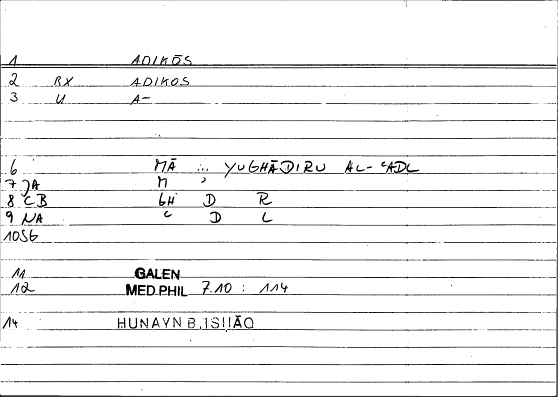 1 ADIKŌS
2 RX ADIKOS
3 U A-
6 MĀ ... YUGHĀDIRU AL-ʿADL
7 JA M ʾ
8 CB GH D R
9 NA ʿ D L
10 SG
11 GALEN
12 MED.PHIL 7.10 : 114
14 HUNAYN B.ISHĀQ